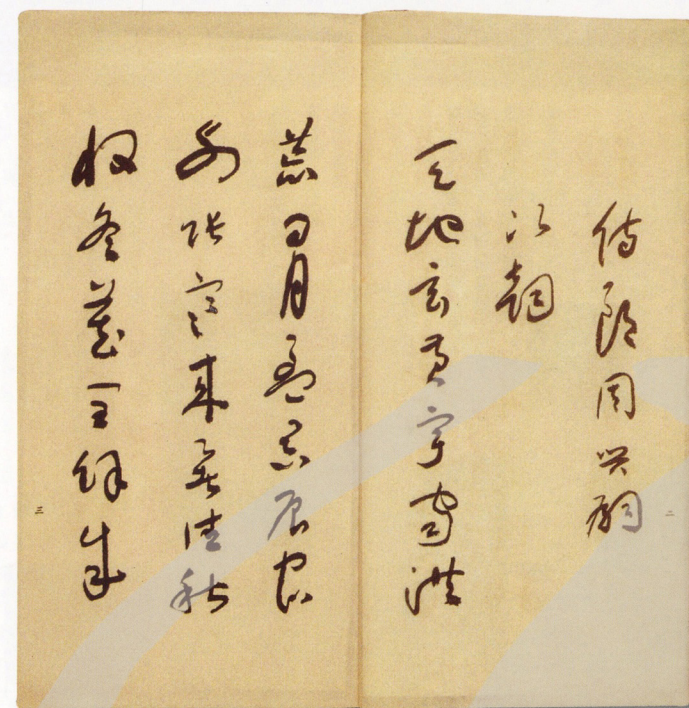 侍郎周興嗣
次韻
天地玄黃宇宙洪
二
荒日月盈昃辰宿
列張寒來暑往秋
收冬藏閏餘成
三